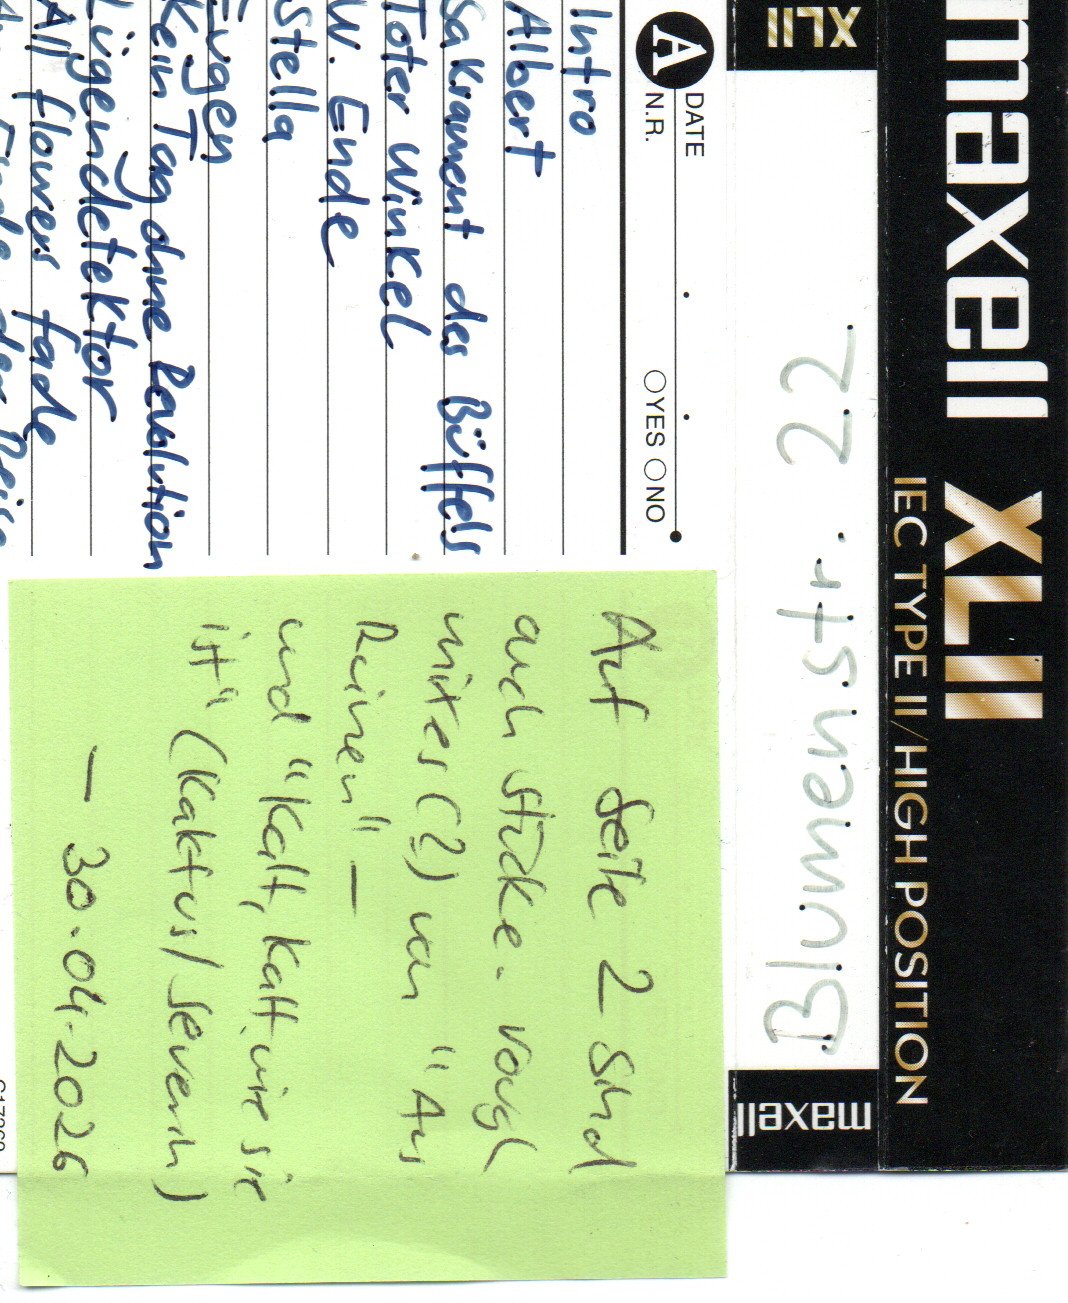 maxell XLII
IEC TYPE II/HIGH POSITION
XLII
Blumenstr. 22
maxell
A
DATE
N.R.
YES
NO
Intro
Albert
Sakrament des Büffels
Toter Winkel
W. Ende
Stella
Eugen
Kein Tag ohne Revolution
Lügendetektor
All flowers fade
Ende der Reise
Auf Seite 2 sind
auch Stücke - rough
mixes (?) von "Aus
Ruinen" —
und "Kalt, kalt wie sie
ist" (Kaktus/Severin)
— 30.04.2026